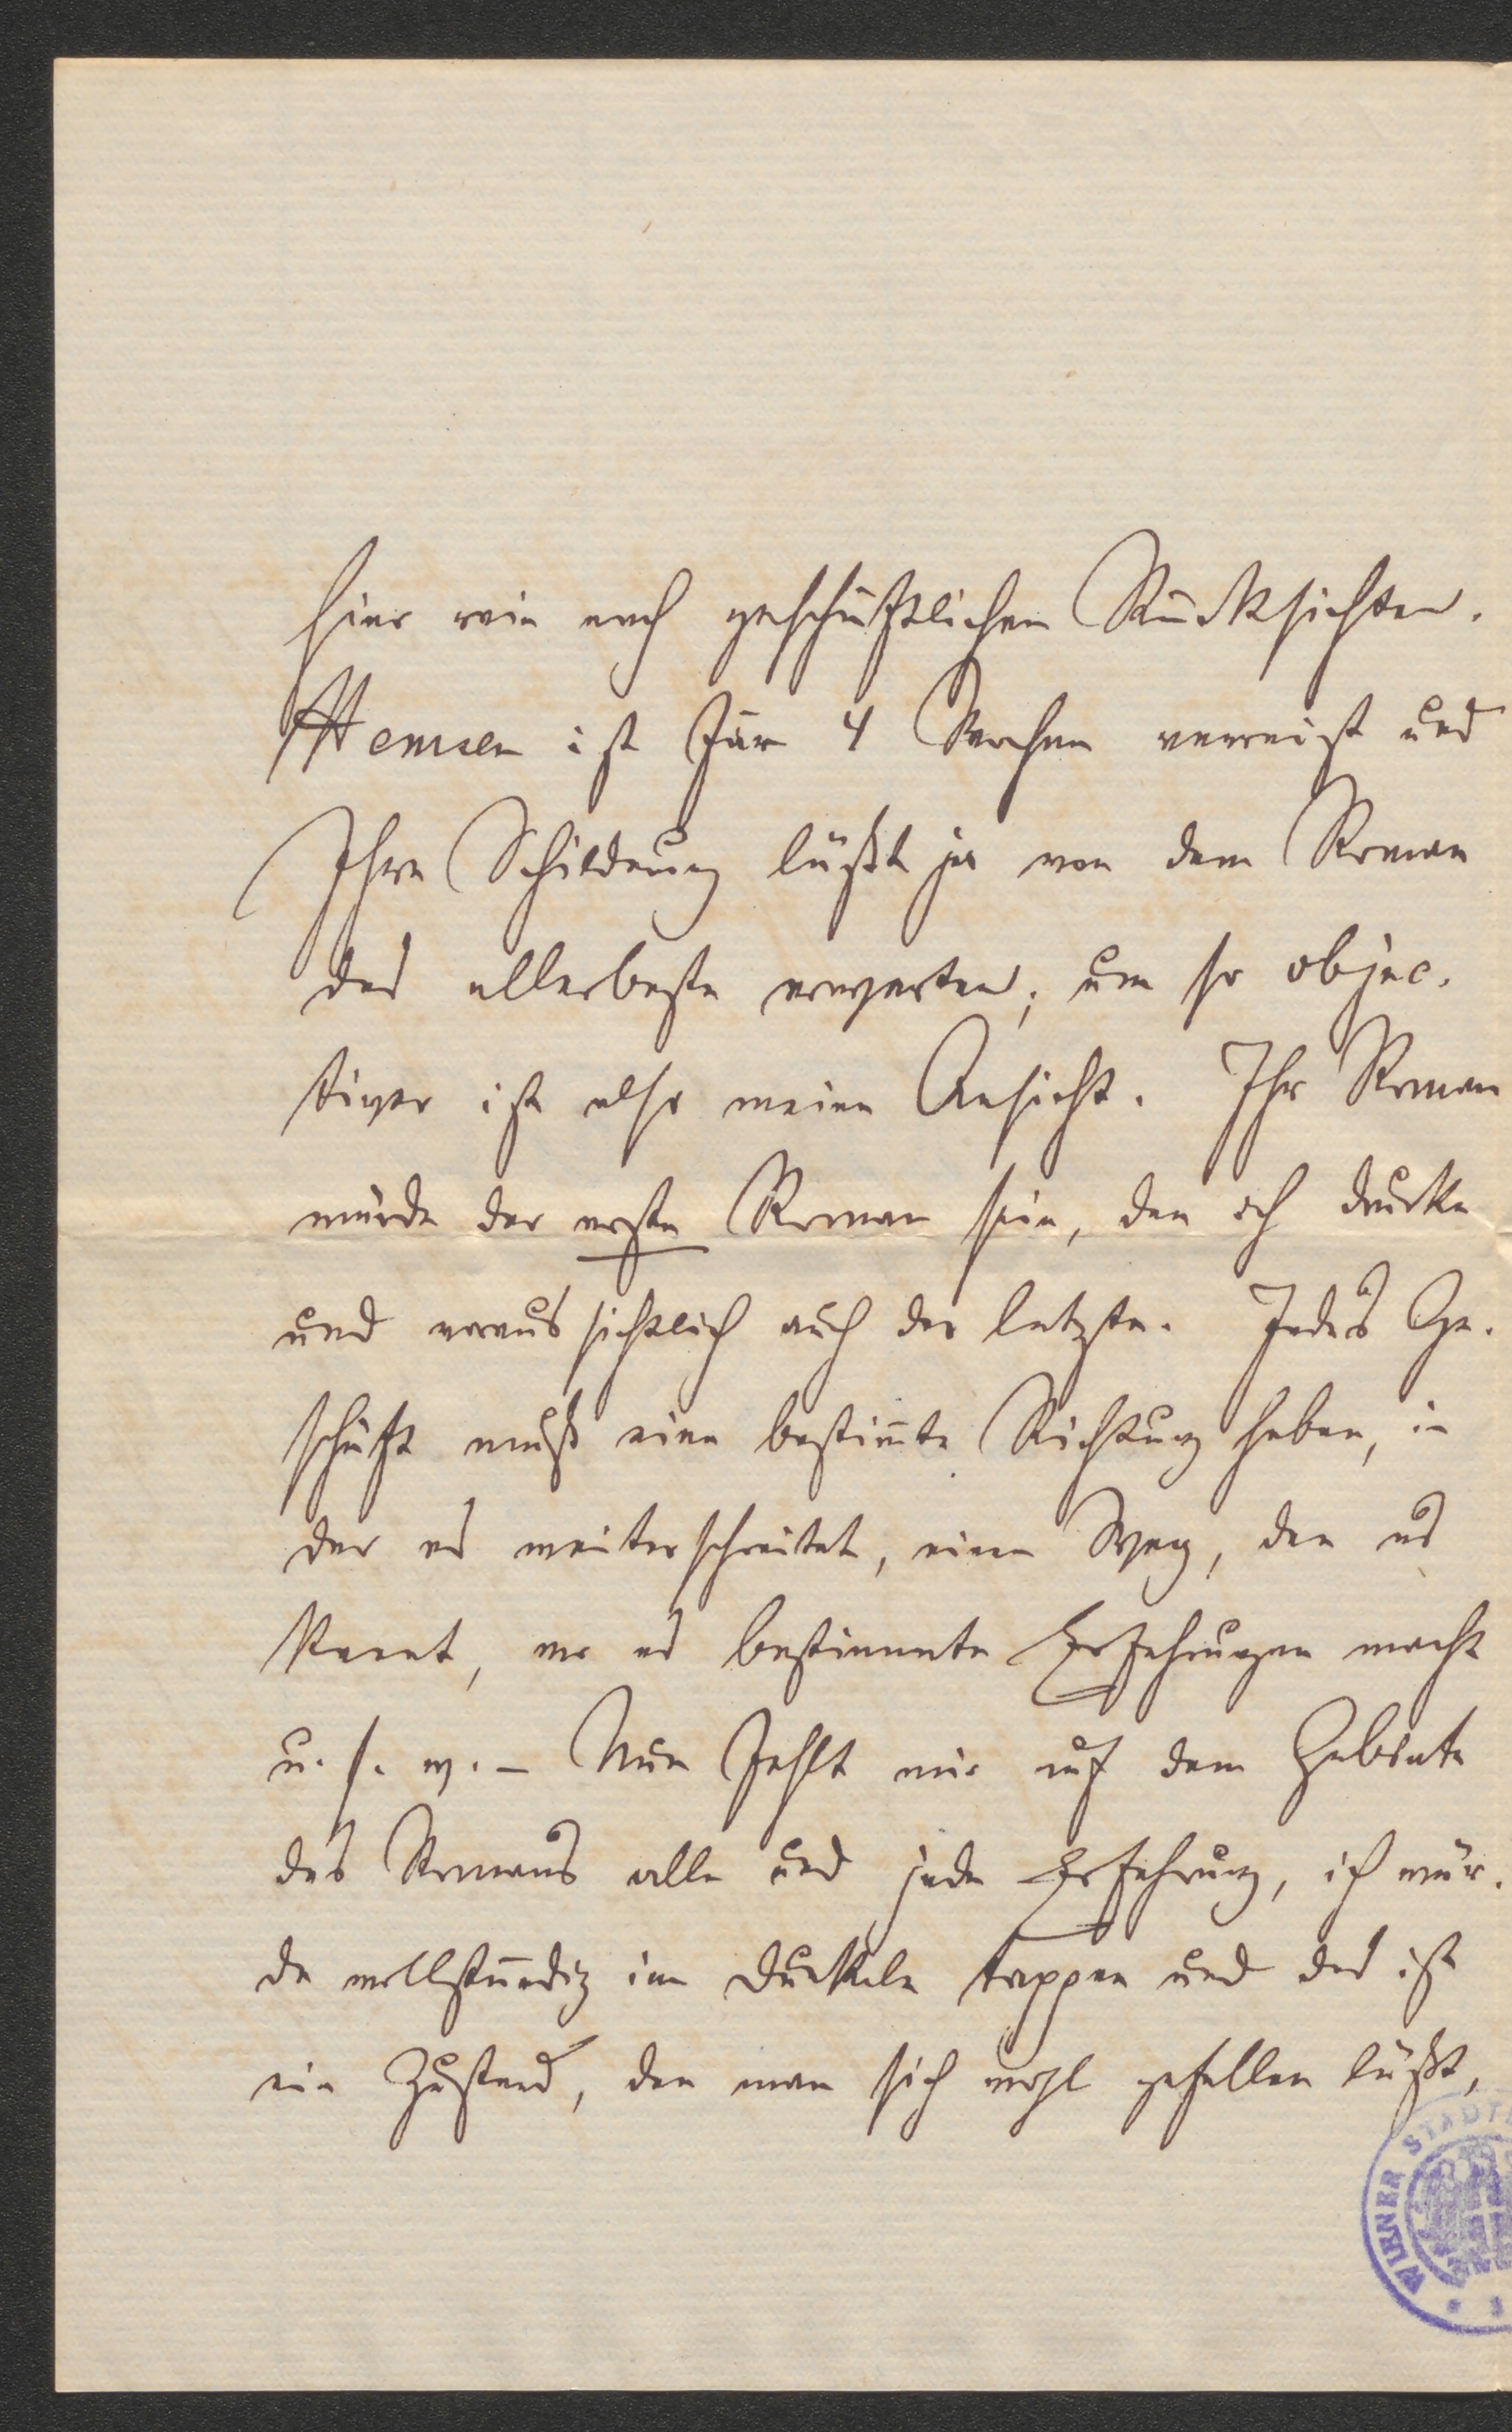 hier rein nach geschäftlichen Rücksichten.
Hemsen ist für 4 Wochen verreist und
Ihre Schilderung läßt ja von dem Roman
das allerbeste erwarten; um so objec-
tiver ist also meine Ansicht. Ihr Roman
würde der erste Roman sein, den ich drucke
und voraussichtlich auch der letzte. Jedes Ge-
schäft muß eine bestimte Richtung haben, in
der es weiterschreitet, einen Weg, den es
kennt, wo es bestimmte Erfahrungen macht
u. s. w. – Nun fehlt mir auf dem Gebiete
des Romans alle und jede Erfahrung, ich wür-
de vollständig im Dunkeln tappen und das ist
ein Zustand, den man sich wohl gefallen läßt,
WIENER STADT